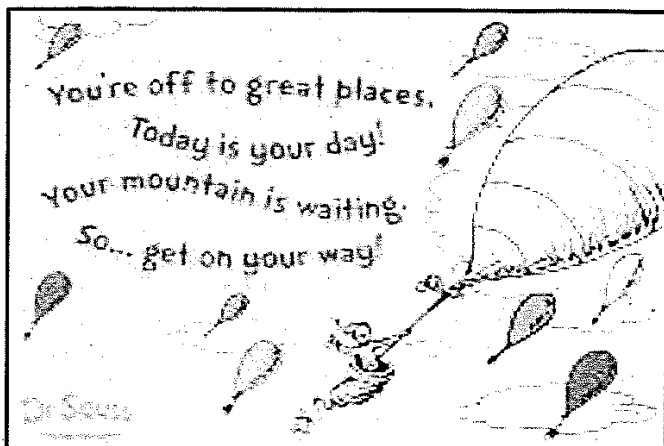 You're off to great places,
Today is your day!
Your mountain is waiting.
So... get on your way!
Dr Seuss